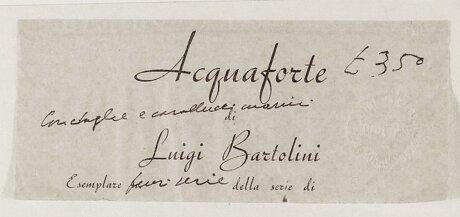 Acquaforte £ 350
Conchiglie e cavallucci marini
di
Luigi Bartolini
Esemplare fuori serie della serie di